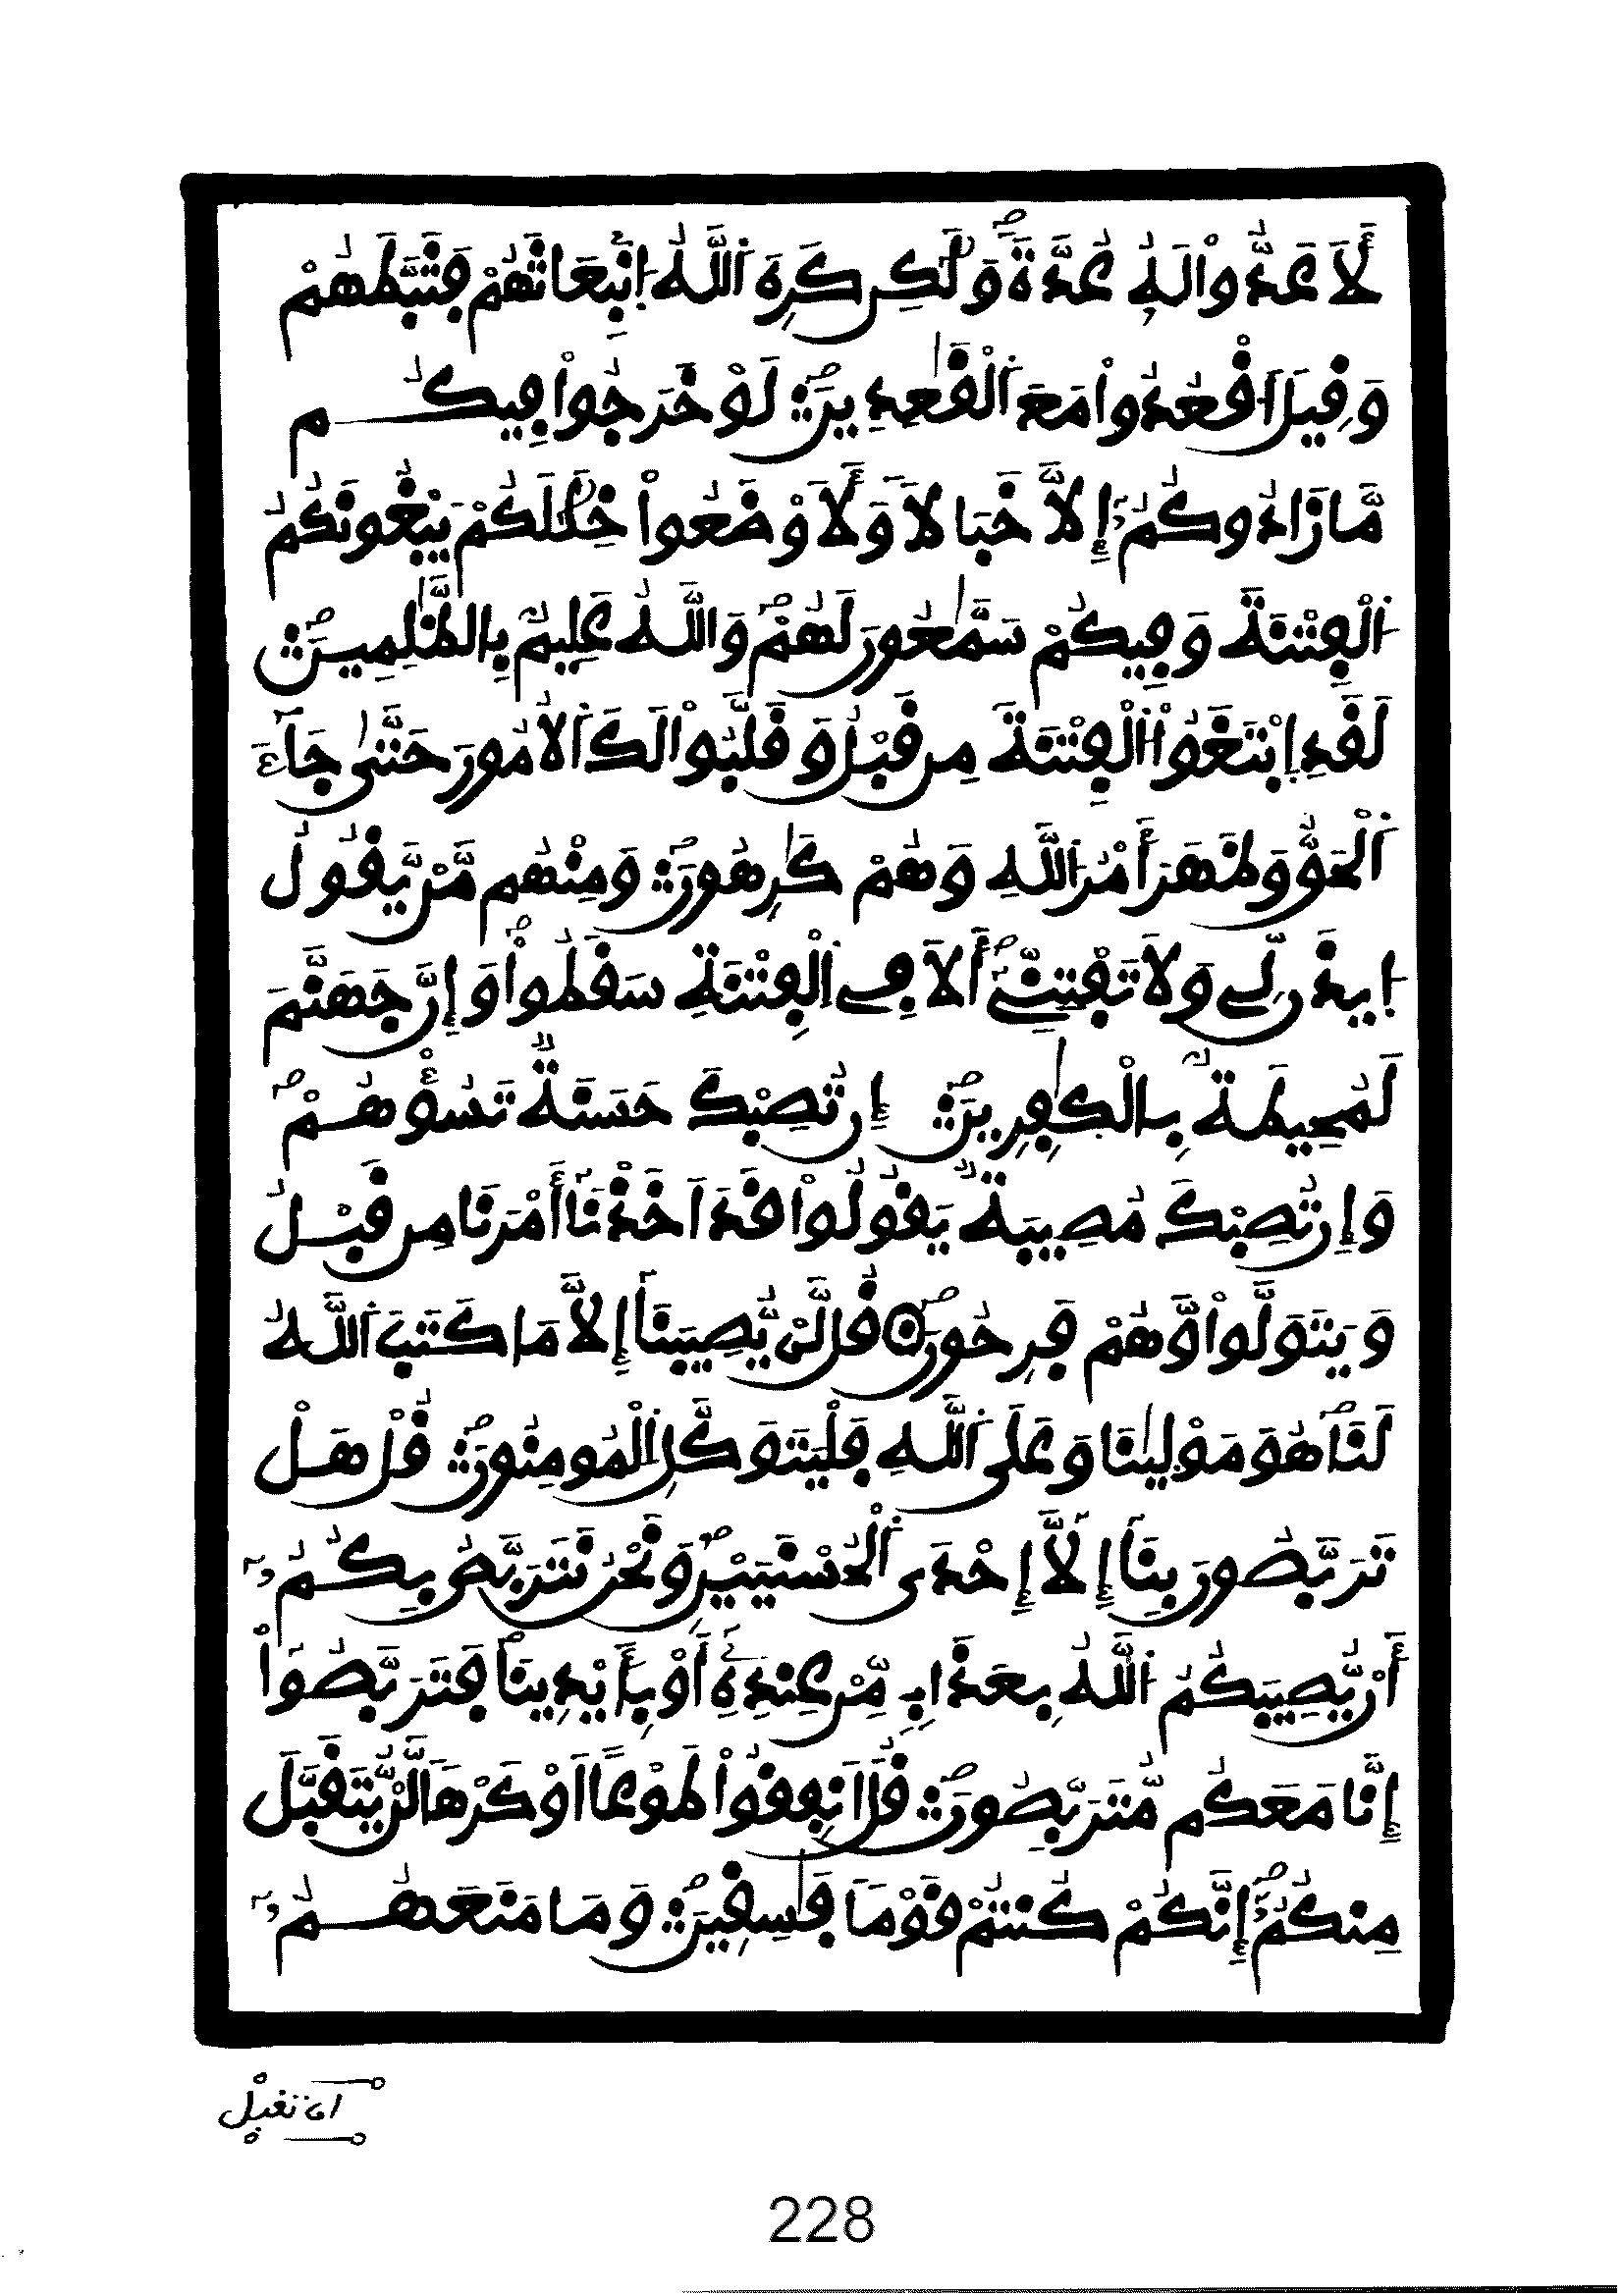 لَأَعَدُّواْ لَهُۥ عُدَّةٗ وَلَٰكِن كَرِهَ اَ۬للَّهُ اُ۪نۢبِعَاثَهُمْ فَثَبَّطَهُمْ
وَقِيلَ اَ۟قْعُدُواْ مَعَ اَ۬لْقَٰعِدِينَۖ لَوْ خَرَجُواْ فِيكُم
مَّا زَادُوكُمُۥٓ إِلَّا خَبَالاٗ وَلَأَوْضَعُواْ خِلَٰلَكُمْ يَبْغُونَكُمُ
اُ۬لْفِتْنَةَ وَفِيكُمْ سَمَّٰعُونَ لَهُمْۖ وَاللَّهُ عَلِيمُۢ بِالظَّٰلِمِينَۖ
لَقَدِ اِ۪بْتَغَوُاْ اُ۬لْفِتْنَةَ مِن قَبْلُ وَقَلَّبُواْ لَكَ اَ۬لُامُورَ حَتَّىٰ جَآءَ
اَ۬لْحَقُّ وَظَهَرَ أَمْرُ اُ۬للَّهِ وَهُمْ كَٰرِهُونَۖ وَمِنْهُم مَّنْ يَّقُولُ
اُ۪يذَن لِّے وَلَا تَفْتِنِّےٓۖ أَلَا فِے اِ۬لْفِتْنَةِ سَقَطُواْۖ وَإِنَّ جَهَنَّمَ
لَمُحِيطَةُۢ بِالْكَٰفِرِينَۖ إِن تُصِبْكَ حَسَنَةٞ تَسُؤْهُمْۖ
وَإِن تُصِبْكَ مُصِيبَةٞ يَقُولُواْ قَدَ اَخَذْنَآ أَمْرَنَا مِن قَبْلُ
وَيَتَوَلَّواْ وَّهُمْ فَرِحُونَۖ ۞ قُل لَّنْ يُّصِيبَنَآ إِلَّا مَا كَتَبَ اَ۬للَّهُ
لَنَاۖ هُوَ مَوْلَيٰنَا وَعَلَى اَ۬للَّهِ فَلْيَتَوَكَّلِ اِ۬لْمُومِنُونَۖ قُلْ هَلْ
تَرَبَّصُونَ بِنَآ إِلَّآ إِحْدَى اَ۬لْحُسْنَيَيْنِۖ وَنَحْنُ نَتَرَبَّصُ بِكُمُۥٓ
أَنْ يُّصِيبَكُمُ اُ۬للَّهُ بِعَذَابٖ مِّنْ عِندِهِۦٓ أَوْ بِأَيْدِينَاۖ فَتَرَبَّصُوٓاْ
إِنَّا مَعَكُم مُّتَرَبِّصُونَۖ قُلَ اَنفِقُواْ طَوْعاً اَوْ كَرْهاٗ لَّنْ يُّتَقَبَّلَ
مِنكُمُۥٓۖ إِنَّكُمْ كُنتُمْ قَوْماٗ فَٰسِقِينَۖ وَمَا مَنَعَهُمُۥٓ
228